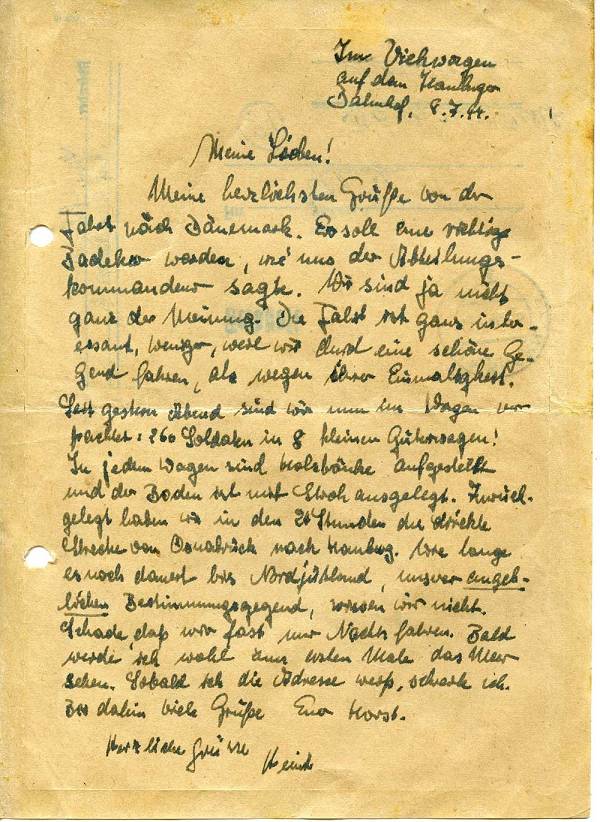 Im Viehwagen
auf dem Hamburger
Bahnhof, 8.7.44.
Meine Lieben!
Meine herzlichsten Grüße von der
Fahrt nach Dänemark. Es soll eine richtige
Badekur werden, wie uns der Abteilungs-
kommandeur sagte. Wir sind ja nicht
ganz der Meinung. Die Fahrt ist ganz inter-
essant, weniger, weil wir durch eine schöne Ge-
gend fahren, als wegen ihrer Einmaligkeit.
Seit gestern Abend sind wir nun im Wagen ver-
frachtet: 260 Soldaten in 8 kleinen Güterwagen!
In jedem Wagen sind Holzbänke aufgestellt
und der Boden ist mit Stroh ausgelegt. Zurück-
gelegt haben wir in den 24 Stunden die direkte
Strecke von Osnabrück nach Hamburg. Wie lange
es noch dauert bis Nordjütland, unserer angeb-
lichen Bestimmungsgegend, wissen wir nicht.
Schade, daß wir fast nur Nachts fahren. Bald
werde ich wohl zum ersten Male das Meer
sehen. Sobald ich die Adresse weiß, schreibe ich.
Bis dahin viele Grüße Euer Horst.
Herzliche Grüsse